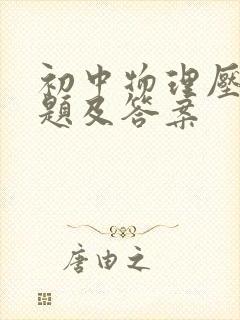 初中物理压
题及答案
唐由之